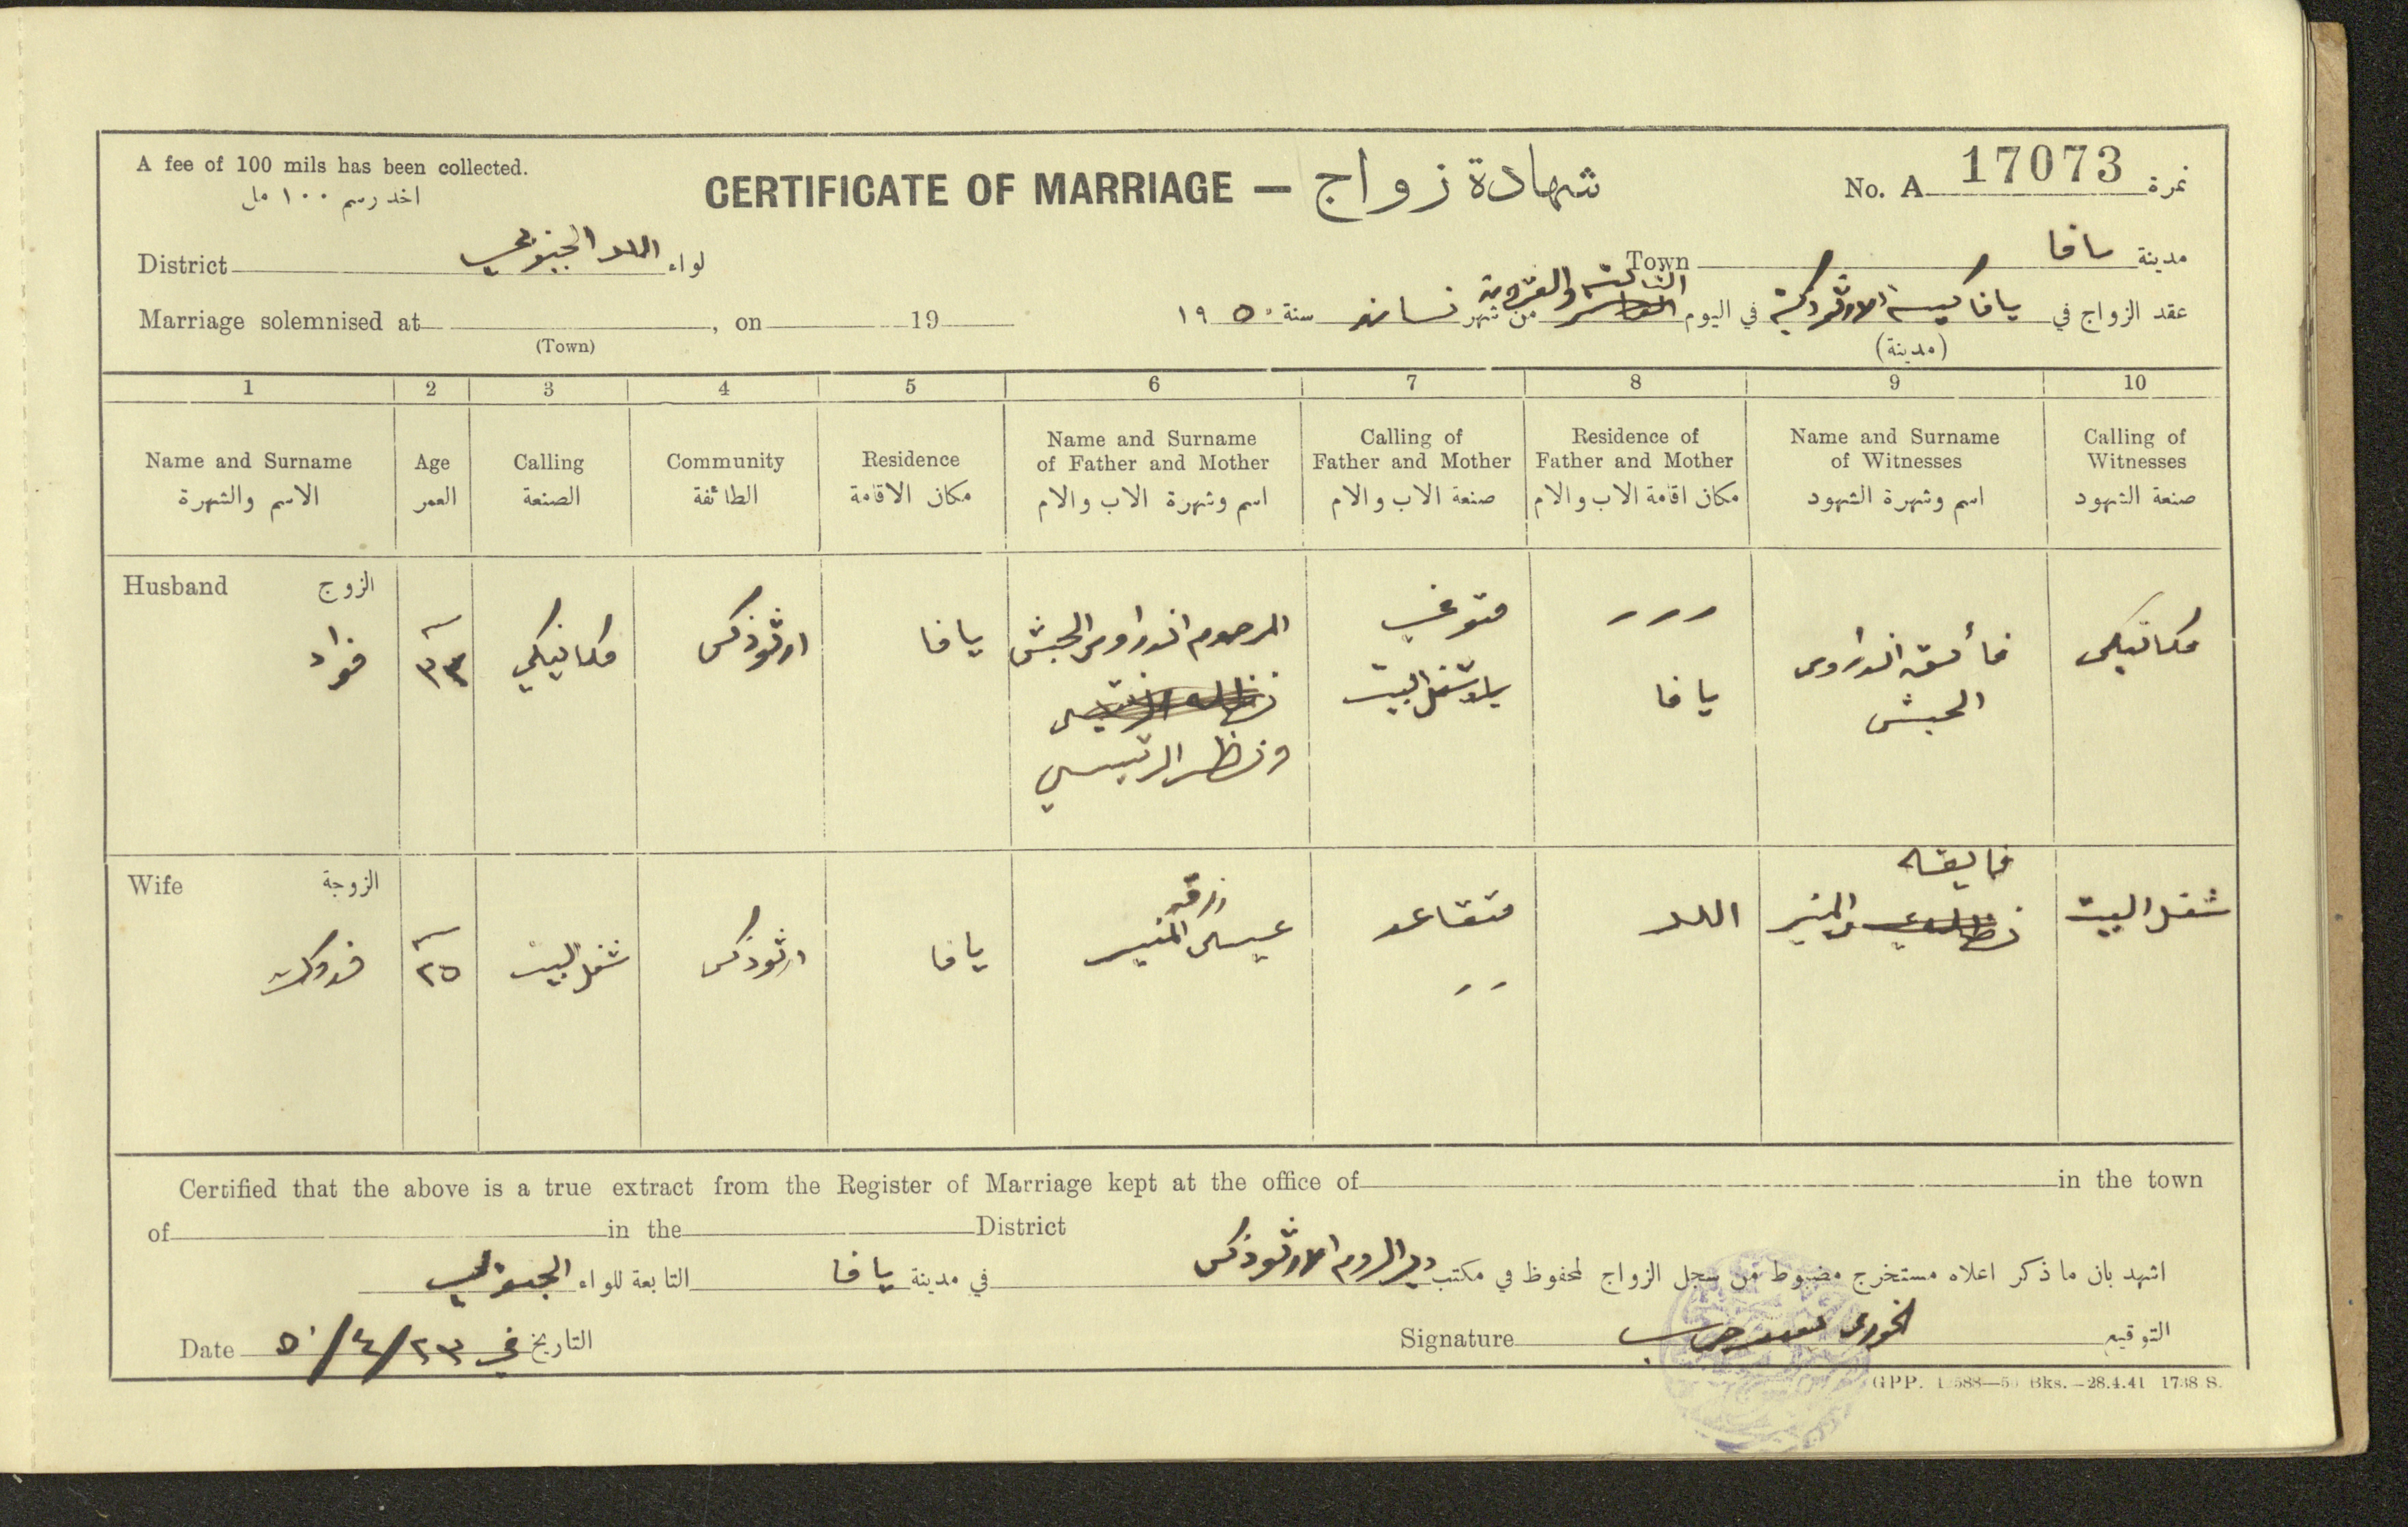 A fee of 100 mils has been collected.
اخذ رسم ١٠٠ مل
CERTIFICATE OF MARRIAGE — شهادة زواج
No. A 17073 نمرة
District لواء اللد الجنوبي
Town مدينة يافا
Marriage solemnised at , on 19
(Town)
عقد الزواج في يافا كنيسة الارثوذكسية في اليوم الثالث والعشرين من شهر نيسان سنة ١٩٥٠
(مدينة)
1 2 3 4 5 6 7 8 9 10
Name and Surname Age Calling Community Residence Name and Surname of Father and Mother Calling of Father and Mother Residence of Father and Mother Name and Surname of Witnesses Calling of Witnesses
الاسم والشهرة العمر الصنعة الطائفة مكان الاقامة اسم وشهرة الاب والام صنعة الاب والام مكان اقامة الاب والام اسم وشهرة الشهود صنعة الشهود
Husband الزوج
فواد ٣٣ مكانيكي ارثوذكس يافا المرحوم اندراوس الحبش متوفي فائق اندراوس مكانيكي
شغل البيت يافا الحبش
ونظر الريسي
Wife الزوجة
فايقه
زرقه
٢٥ شغل البيت ارثوذكس يافا عيسى المنير متقاعد اللد المنير شغل البيت
Certified that the above is a true extract from the Register of Marriage kept at the office of in the town
of in the District
اشهد بان ما ذكر اعلاه مستخرج مضبوط من سجل الزواج لمحفوظ في مكتب دير الروم الارثوذكس في مدينة يافا التابعة للواء الجنوبي
Date التاريخ في ٢٣/٤/٥٠
Signature الخوري التوقيع
GPP. 588—5 Bks.—28.4.41 1738 S.